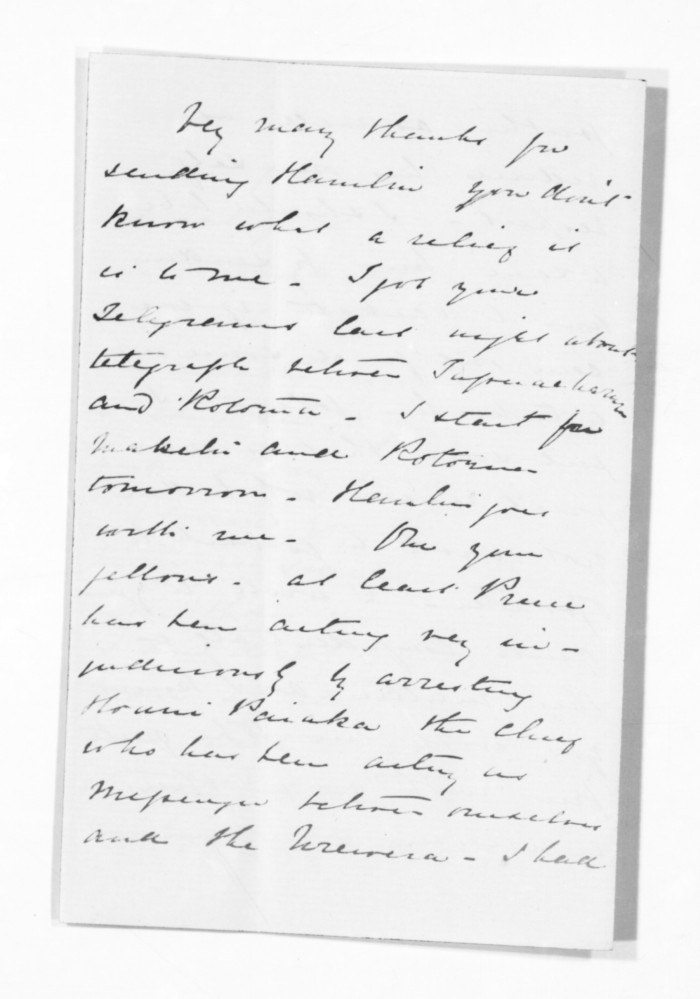 Vey many thanks for
sending Hamlin you don't
know what a relief it
is to me - I got your
Telegrams last night about
telegraph between
and Rotorua - I start for
Maketu and Rotorua
tomorrow - Hamlin goes
with me - your
fellows - at least Preece
has been acting very in-
judiciously by arresting
the chief
who has been acting as
Messenger between ourselves
and the Urewera - I had